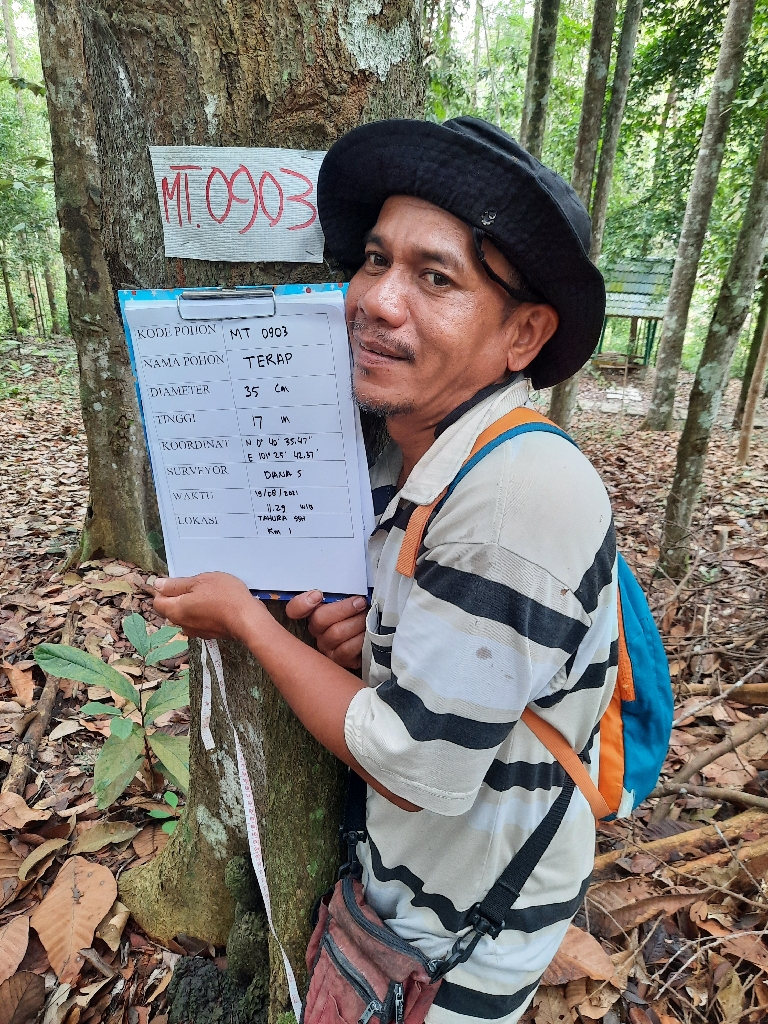 MT.0903
KODE POHON MT 0903
NAMA POHON TERAP
DIAMETER 35 Cm
TINGGI 17 m
KOORDINAT N 0° 40' 35.47"
E 101° 25' 42.37"
SURVEYOR DANA S
WAKTU 19/08/2021
11.29 WIB
LOKASI TAHURA SSH
Km 1